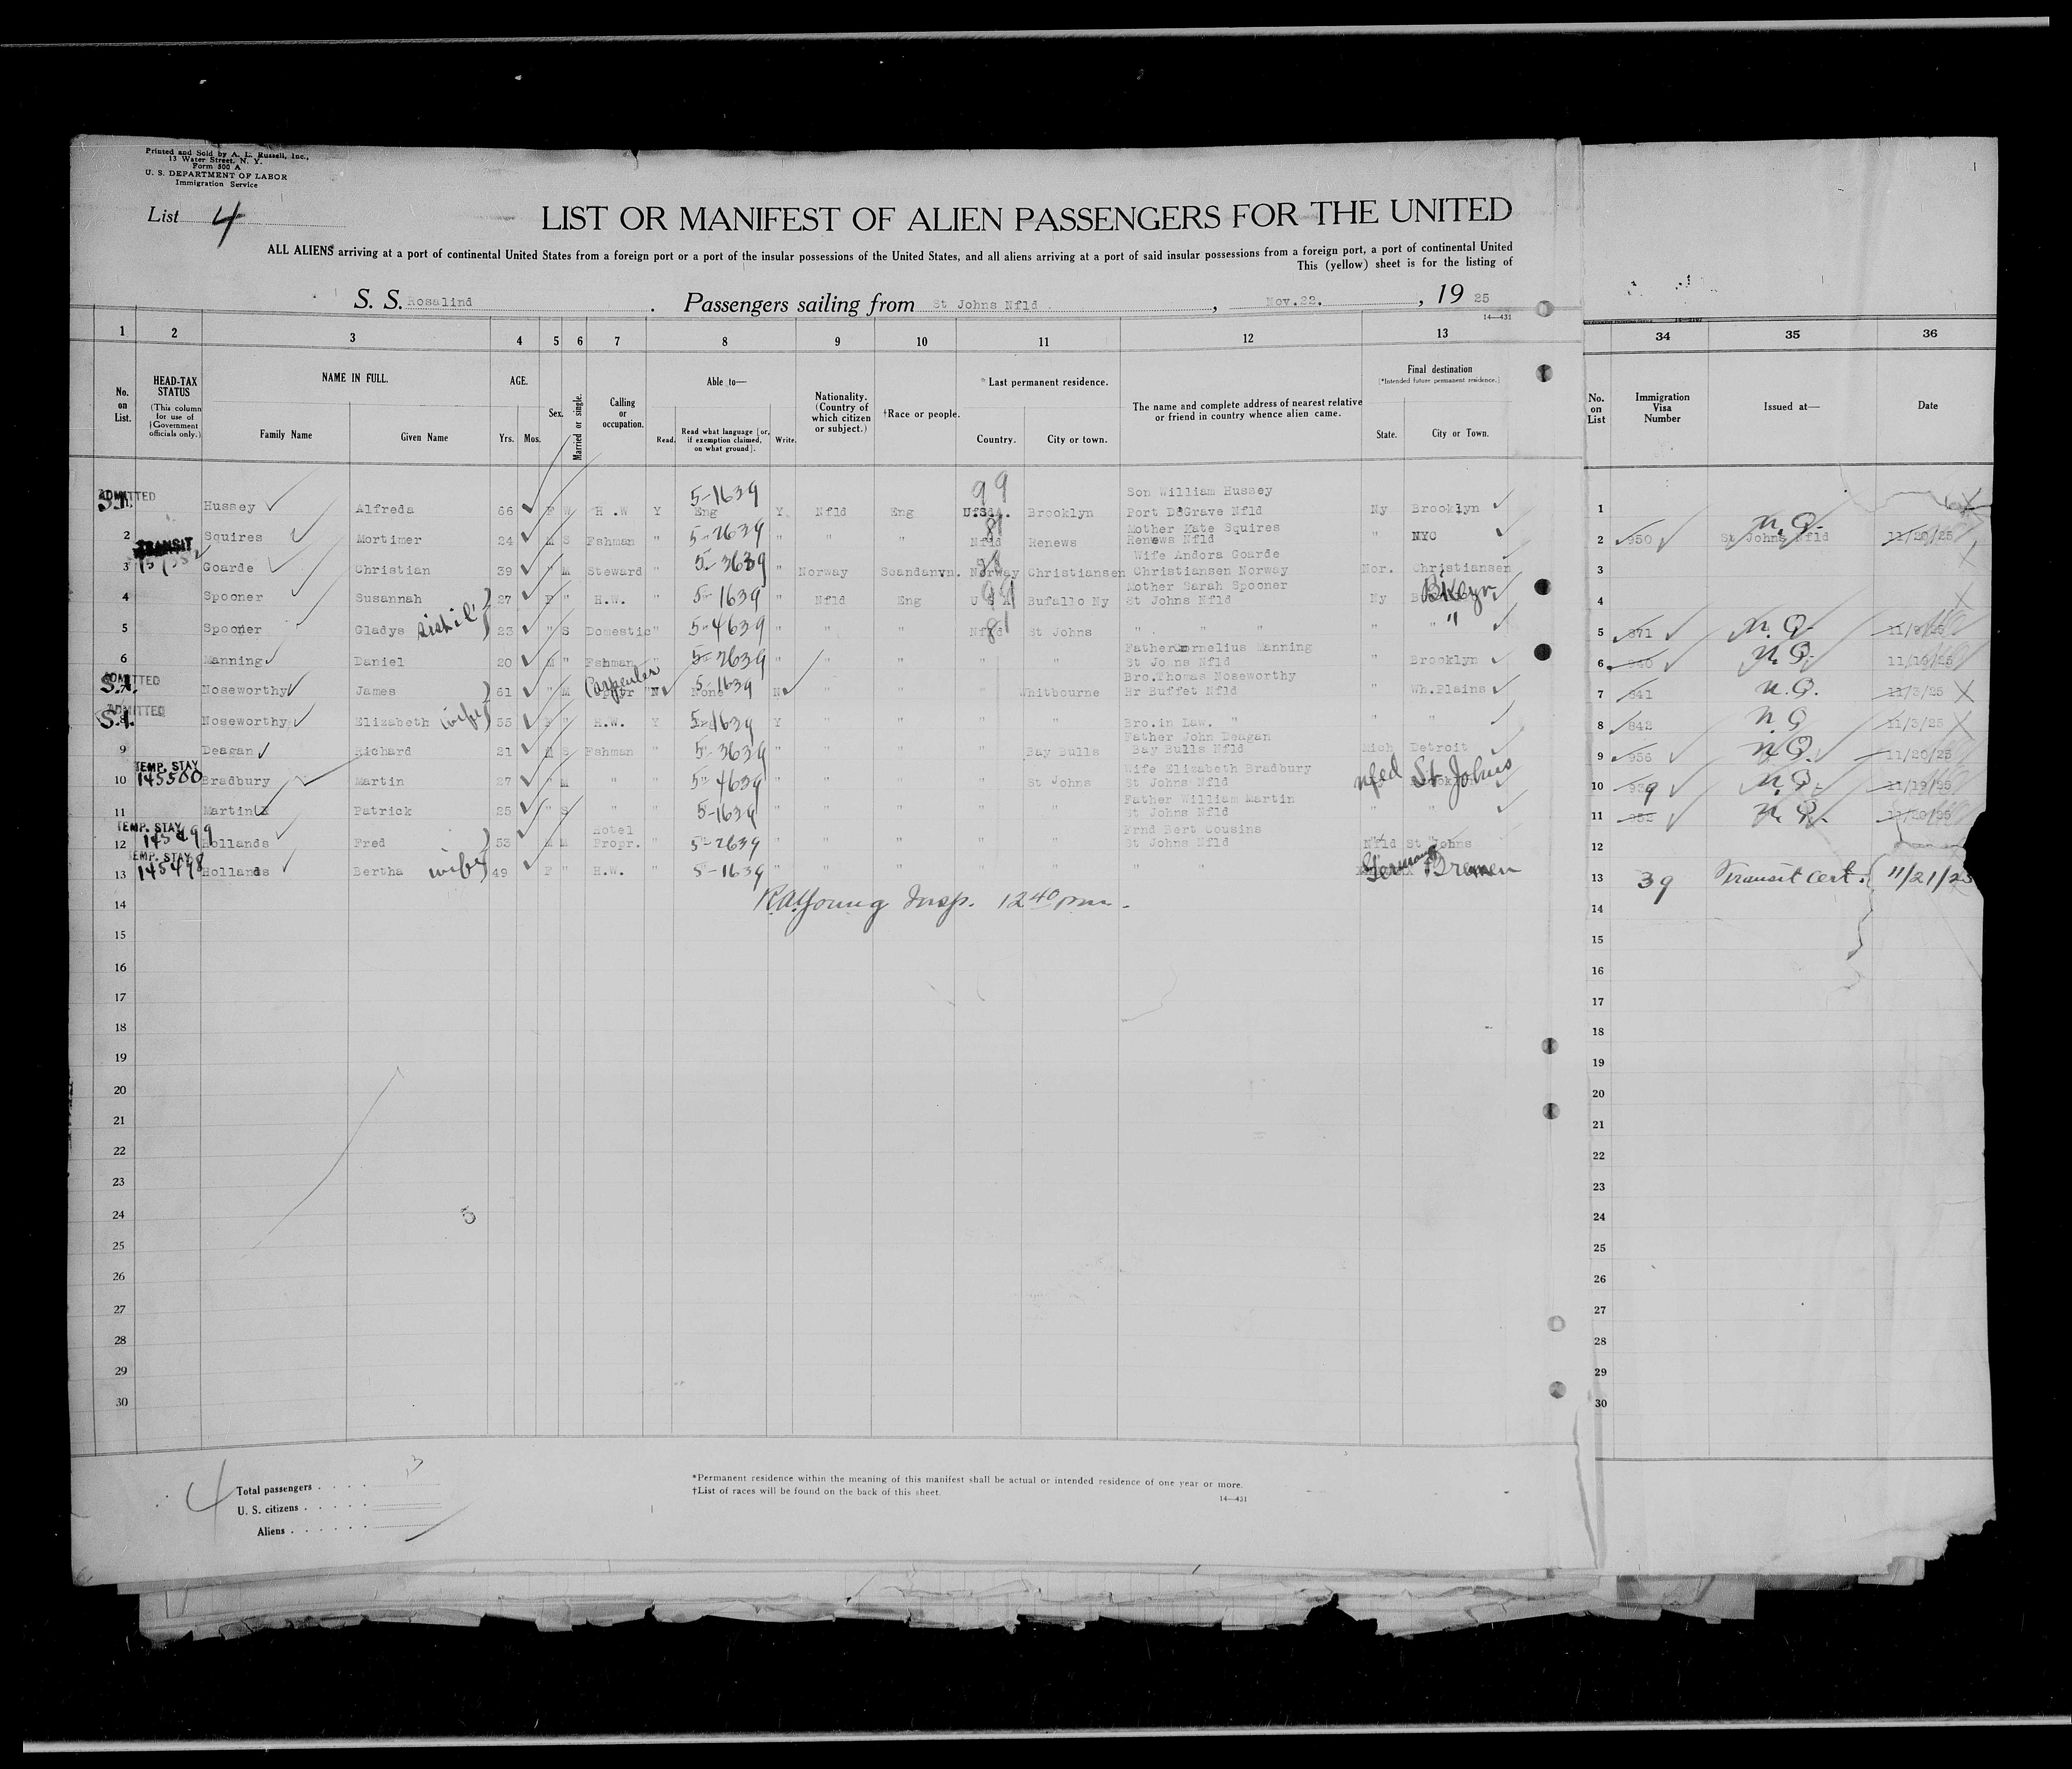 Printed and Sold by A. L. Russell, Inc.,
13 Water Street, N. Y.
Form 500 A
U. S. DEPARTMENT OF LABOR
Immigration Service
List 4
LIST OR MANIFEST OF ALIEN PASSENGERS FOR THE UNITED
ALL ALIENS arriving at a port of continental United States from a foreign port or a port of the insular possessions of the United States, and all aliens arriving at a port of said insular possessions from a foreign port, a port of continental United
This (yellow) sheet is for the listing of
S. S. Rosalind. Passengers sailing from St Johns Nfld, Nov.22., 19 25
14—431
1 2 3 4 5 6 7 8 9 10 11 12 13 34 35 36
No. on List.
HEAD-TAX STATUS
(This column for use of Government officials only.)
NAME IN FULL.
Family Name Given Name
AGE.
Yrs. Mos.
Sex.
Married or single.
Calling or occupation.
Able to—
Read. Read what language [or, if exemption claimed, on what ground]. Write.
Nationality. (Country of which citizen or subject.)
†Race or people.
*Last permanent residence.
Country. City or town.
The name and complete address of nearest relative or friend in country whence alien came.
Final destination
(*Intended future permanent residence.)
State. City or Town.
No. on List
Immigration Visa Number
Issued at—
Date
ADMITTED 5-1639 99 Son William Hussey
S.I. Hussey Alfreda 66 F W H.W Y Eng Y Nfld Eng U.S.A. Brooklyn Port DeGrave Nfld Ny Brooklyn 1
Mother Kate Squires
2 Squires Mortimer 24 M S Fshman " 5-2639 " " " 81 Nfld Renews Renews Nfld " NYC 2 950 N.Q. St Johns Nfld 11/20/25
TRANSIT Wife Andora Goarde
3 Goarde Christian 39 " M Steward " 5-3639 " Norway Scandanvn. Norway Christiansen Christiansen Norway Nor. Christiansen 3
Mother Sarah Spooner
4 Spooner Susannah 27 F " H.W. " 5-1639 " Nfld Eng U S A 99 Bufallo Ny St Johns Nfld Ny Bklyn 4
5 Spooner Gladys 23 " S Domestic " 5-4639 " " " Nfld 81 St Johns " " " " " 5 871 N.Q.
Father Cornelius Manning
6 Manning Daniel 20 M " Fshman " 5-2639 " " " " " St Johns Nfld " Brooklyn 6 940 N.Q. 11/19/25
ADMITTED Carpenter Bro.Thomas Noseworthy
S.I. Noseworthy James 61 " M N None 5-1639 N " " " Whitbourne Hr Buffet Nfld " Wh.Plains 7 841 N.Q. 11/3/25
ADMITTED
S.I. 8 Noseworthy Elizabeth wife 55 F " H.W. Y 5-1639 Y " " " " Bro.in Law. " " " 8 842 N.Q. 11/3/25
Father John Deagan
9 Deagan Richard 21 M S Fshman " 5-3639 " " " " Bay Bulls Bay Bulls Nfld Mich Detroit 9 956 N.Q. 11/20/25
TEMP. STAY Wife Elizabeth Bradbury
10 145500 Bradbury Martin 27 " M " " 5-4639 " " " " St Johns St Johns Nfld nfld St. Johns 10 N.Q. 11/19/25
Father William Martin
11 Martin Patrick 25 " S " " 5-1639 " " " " " St Johns Nfld " 11 N.Q. 11/20/25
TEMP. STAY Hotel Frnd Bert Cousins
12 145499 Hollands Fred 53 M M Propr. " 5-2639 " " " " " St Johns Nfld Nfld St Johns 12
TEMP. STAY
13 145498 Hollands Bertha wife 49 F " H.W. " 5-1639 " " " " " " " Germany Bremen 13 39 Transit Cert. 11/21/25
14 R.A. Young Insp. 12 40 pm. 14
15 15
16 16
17 17
18 18
19 19
20 20
21 21
22 22
23 23
24 5 24
25 25
26 26
27 27
28 28
29 29
30 30
4
Total passengers . . . . 13
U. S. citizens . . . . .
Aliens . . . . . .
*Permanent residence within the meaning of this manifest shall be actual or intended residence of one year or more.
†List of races will be found on the back of this sheet.
14—431